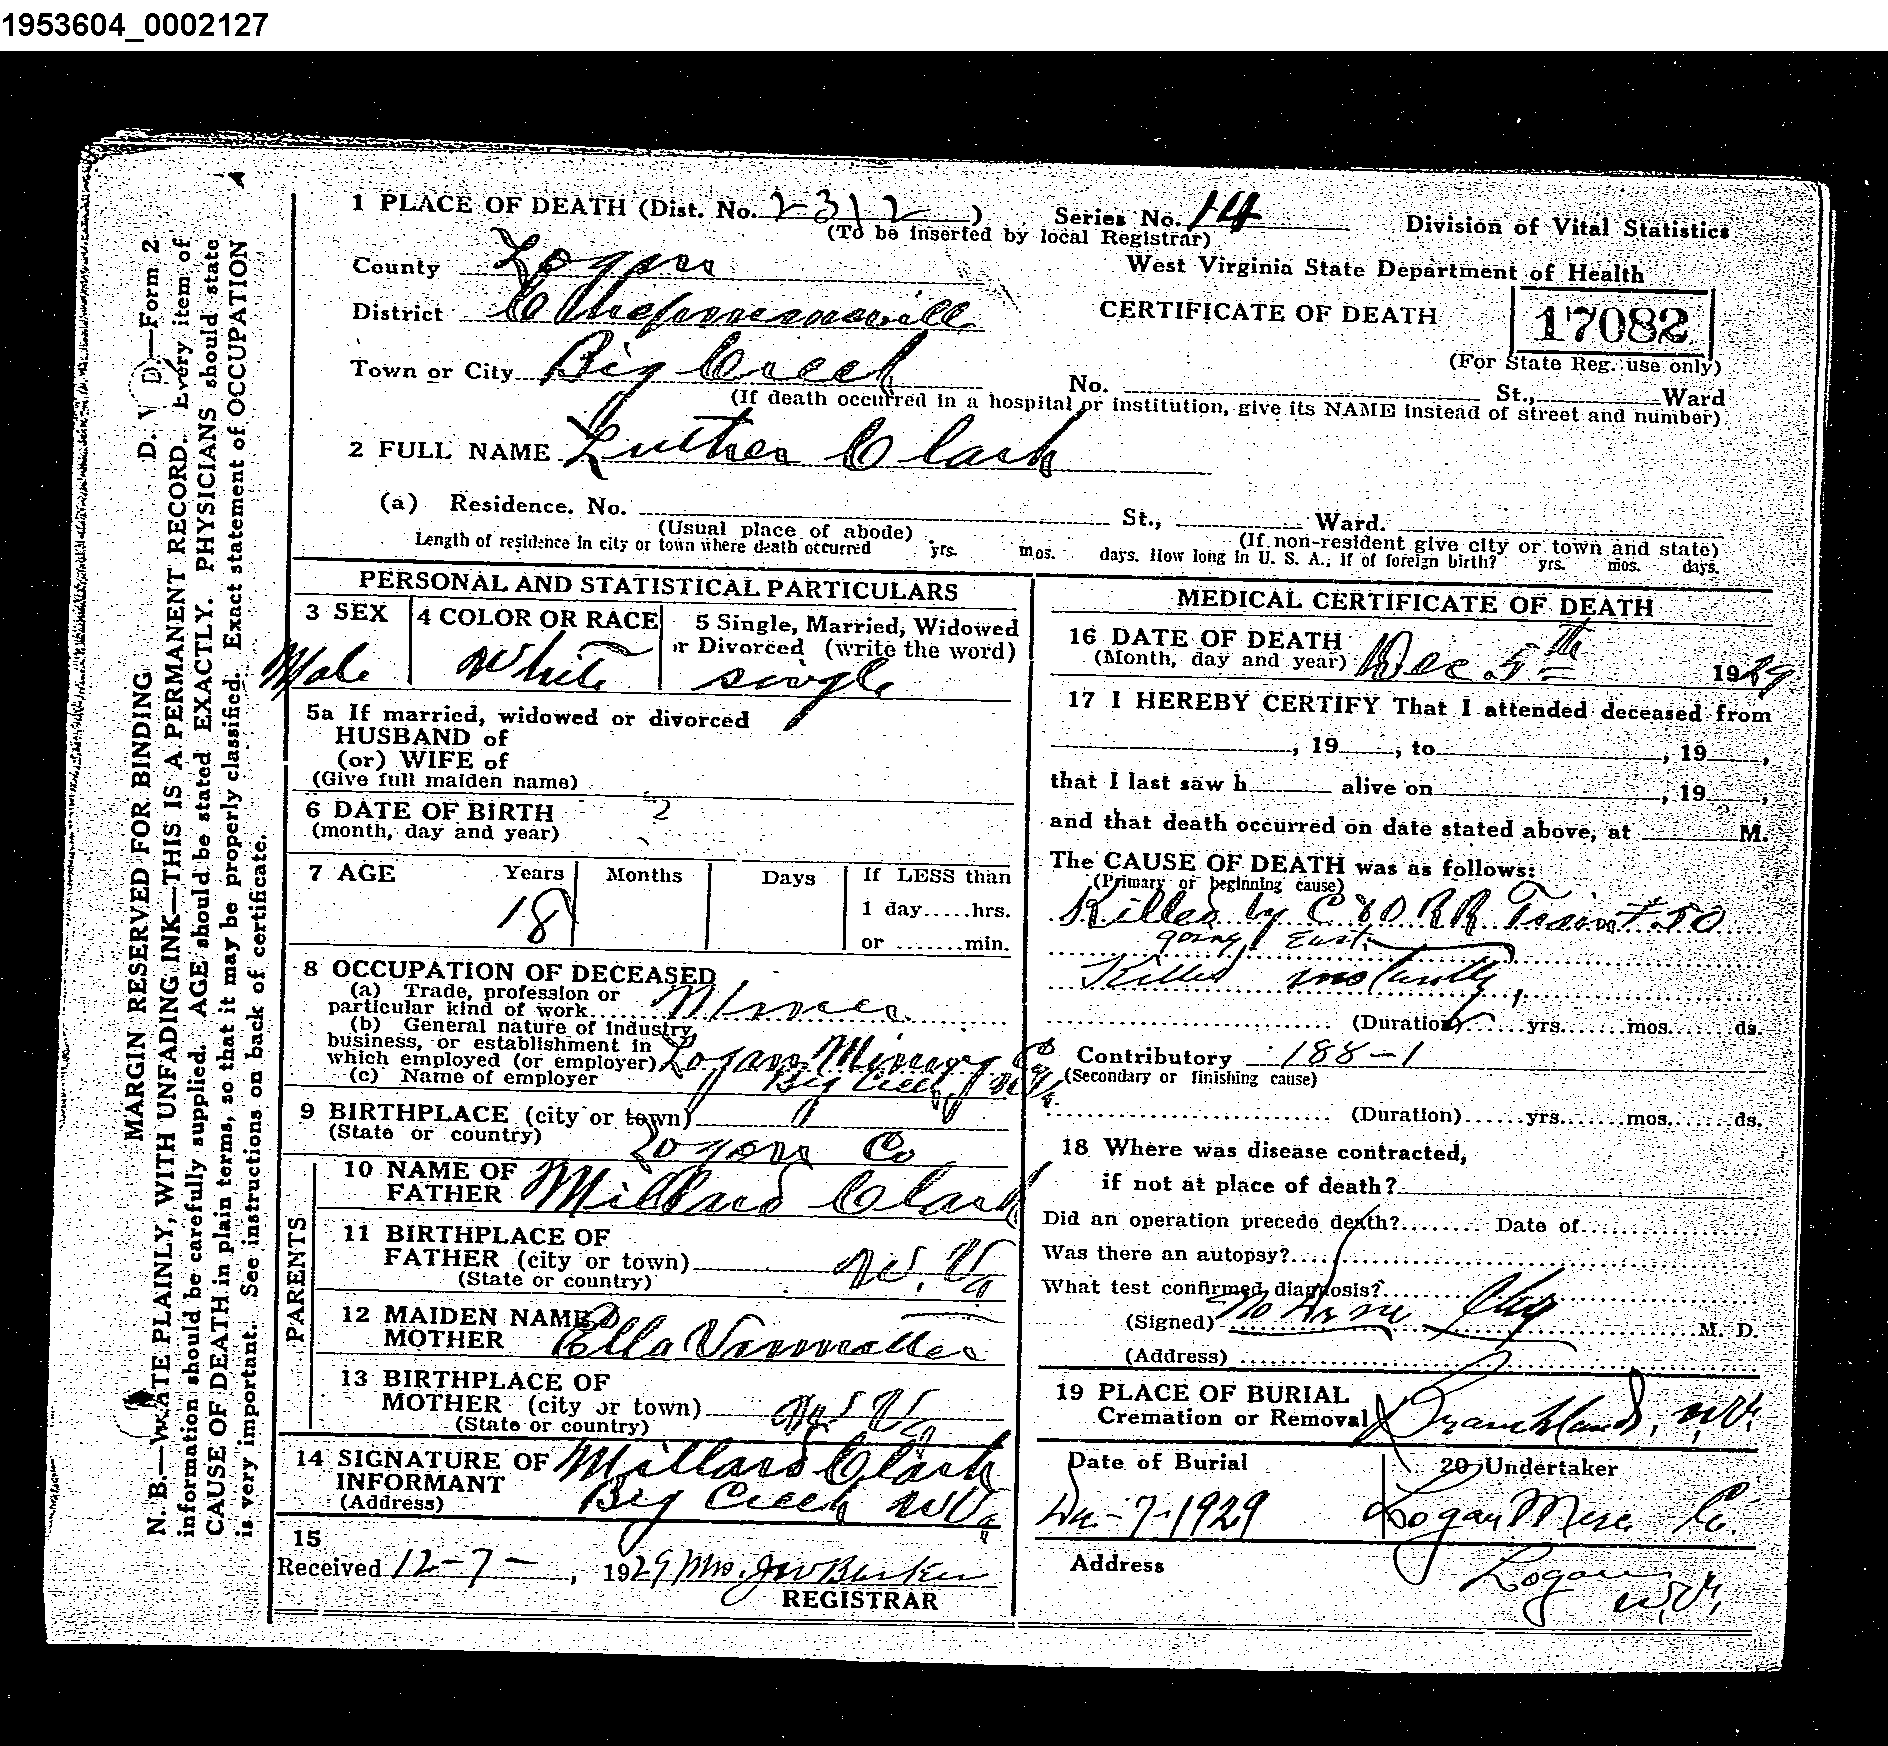 1953604_0002127
1 PLACE OF DEATH (Dist. No. 2312) Series No. 14 Division of Vital Statistics
(To be inserted by local Registrar)
County Logan West Virginia State Department of Health
District Chapmanville CERTIFICATE OF DEATH 17082
(For State Reg. use only)
Town or City Big Creek No. St., Ward
(If death occurred in a hospital or institution, give its NAME instead of street and number)
2 FULL NAME Luther Clark
(a) Residence. No. St., Ward.
(Usual place of abode) (If non-resident give city or town and state)
Length of residence in city or town where death occurred yrs. mos. days. How long in U. S. A., if of foreign birth? yrs. mos. days.
PERSONAL AND STATISTICAL PARTICULARS
3 SEX 4 COLOR OR RACE 5 Single, Married, Widowed
or Divorced (write the word)
Male White single
5a If married, widowed or divorced
HUSBAND of
(or) WIFE of
(Give full maiden name)
6 DATE OF BIRTH ?
(month, day and year)
7 AGE Years Months Days If LESS than
18 1 day.....hrs.
or .......min.
8 OCCUPATION OF DECEASED
(a) Trade, profession or
particular kind of work Miner
(b) General nature of industry,
business, or establishment in
which employed (or employer) Logan Mining Co
(c) Name of employer Big Creek, W.Va.
9 BIRTHPLACE (city or town)
(State or country) Logan Co
PARENTS
10 NAME OF
FATHER Millard Clark
11 BIRTHPLACE OF
FATHER (city or town) W. Va
(State or country)
12 MAIDEN NAME
MOTHER Ella
13 BIRTHPLACE OF
MOTHER (city or town) W. Va
(State or country)
14 SIGNATURE OF Millard Clark
INFORMANT
(Address) Big Creek W Va
15
Received 12-7-, 1929 Mrs. J W
REGISTRAR
MEDICAL CERTIFICATE OF DEATH
16 DATE OF DEATH
(Month, day and year) Dec 5th 1929
17 I HEREBY CERTIFY That I attended deceased from
, 19 , to , 19 ,
that I last saw h alive on , 19 ,
and that death occurred on date stated above, at M.
The CAUSE OF DEATH was as follows:
(Primary or beginning cause)
Killed by C & O RR Train # 50
going East.
Killed instantly,
(Duration) yrs. mos. ds.
Contributory 188-1
(Secondary or finishing cause)
(Duration) yrs. mos. ds.
18 Where was disease contracted,
if not at place of death?
Did an operation precede death? Date of
Was there an autopsy?
What test confirmed diagnosis?
(Signed) M. D.
(Address)
19 PLACE OF BURIAL
Cremation or Removal Branchland, W.Va.
Date of Burial 20 Undertaker
Dec-7-1929 Logan Merc. Co.
Address Logan
W.Va.
MARGIN RESERVED FOR BINDING D.—Form 2
N. B.—WRITE PLAINLY, WITH UNFADING INK—THIS IS A PERMANENT RECORD. Every item of
information should be carefully supplied. AGE should be stated EXACTLY. PHYSICIANS should state
CAUSE OF DEATH in plain terms, so that it may be properly classified. Exact statement of OCCUPATION
is very important. See instructions on back of certificate.